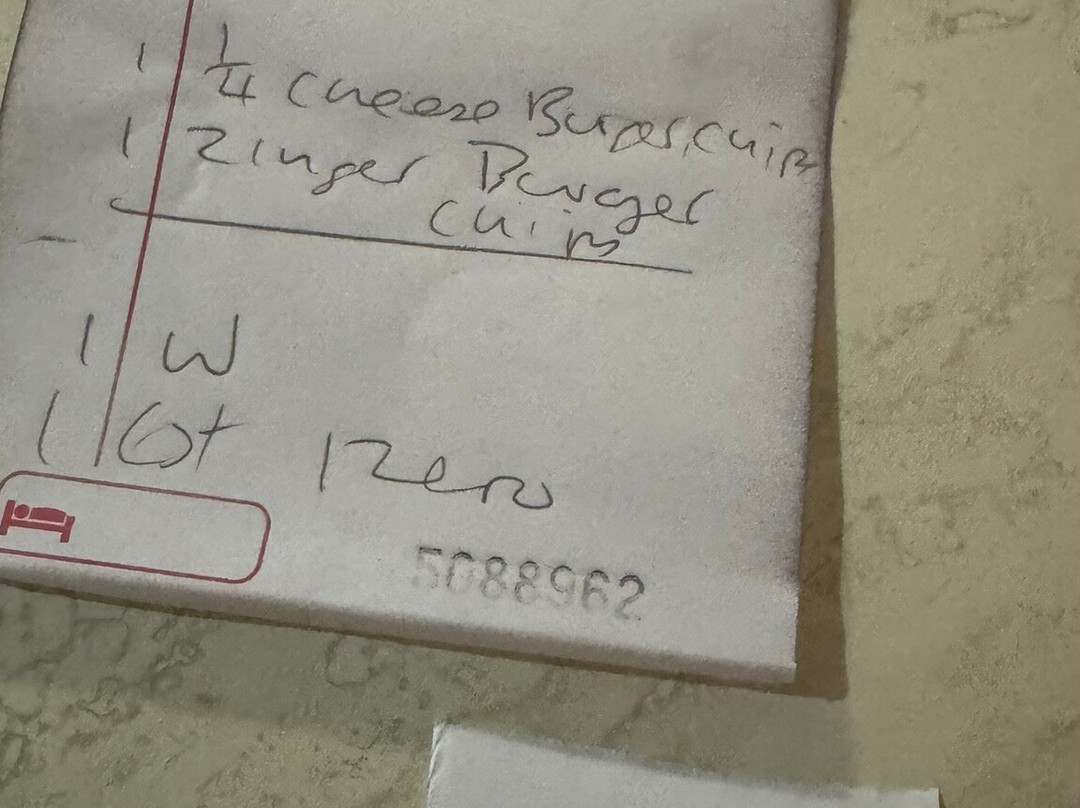 1 1/4 Cheese Burger, Chips
1 Zinger Burger
Chips
1 W
1 Gt Zero
5088962